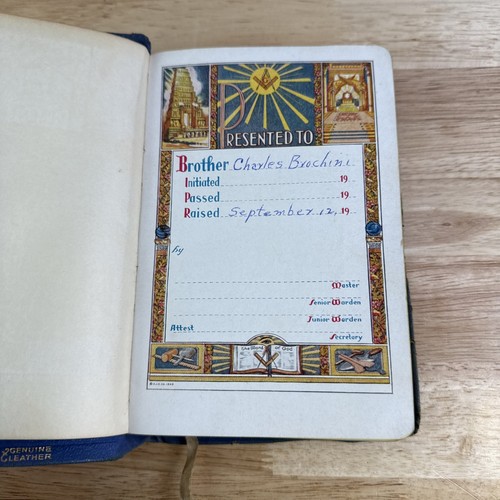 PRESENTED TO
Brother Charles Brochini
Initiated 19
Passed 19
Raised September 12, 19
by
Master
Senior Warden
Junior Warden
Attest Secretary
GENUINE
LEATHER